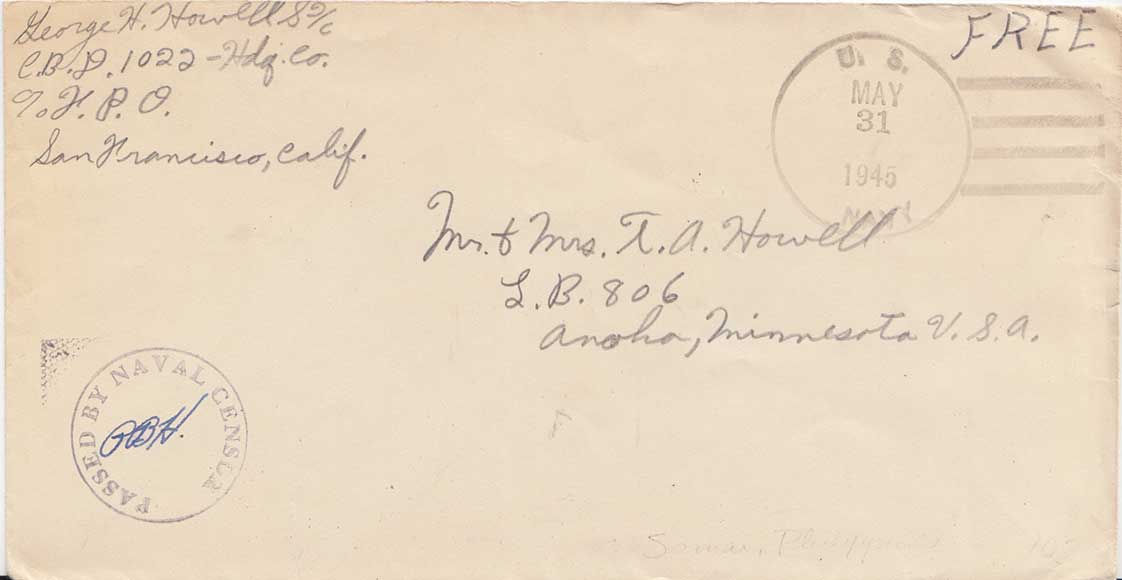 George H. Howell S2/c
C.B.D. 1022 - Hdq. Co.
℅ F. P. O.
San Francisco, Calif.
FREE
U. S.
MAY
31
1945
NAVY
Mr. & Mrs. T. A. Howell
L.B. 806
Anoka, Minnesota U.S.A.
PASSED BY NAVAL CENSOR
Samar, Philippines